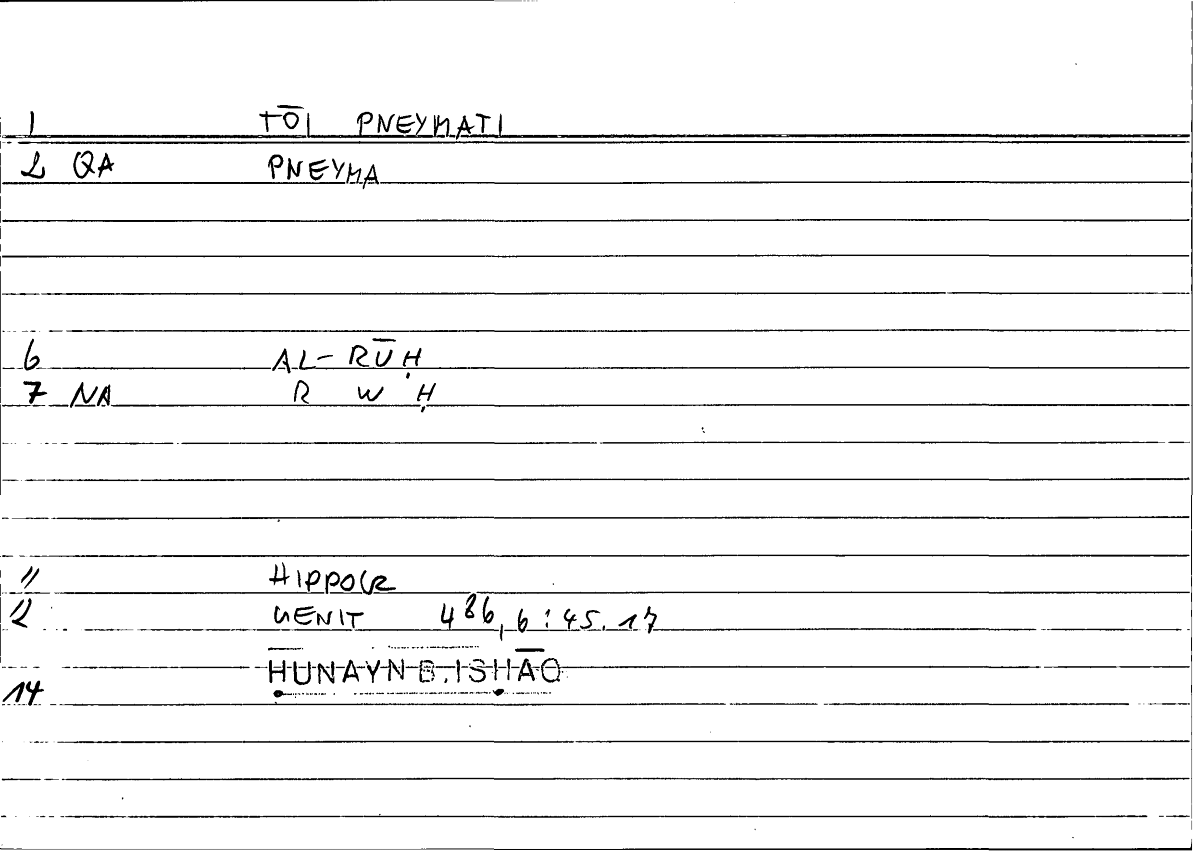 1 TŌI PNEYMATI
2 QA PNEYMA
6 AL-RŪḤ
7 NA R W Ḥ
11 HIPPOCR
12 GENIT 486,6:45.17
ḤUNAYN B. ISḤĀQ
14